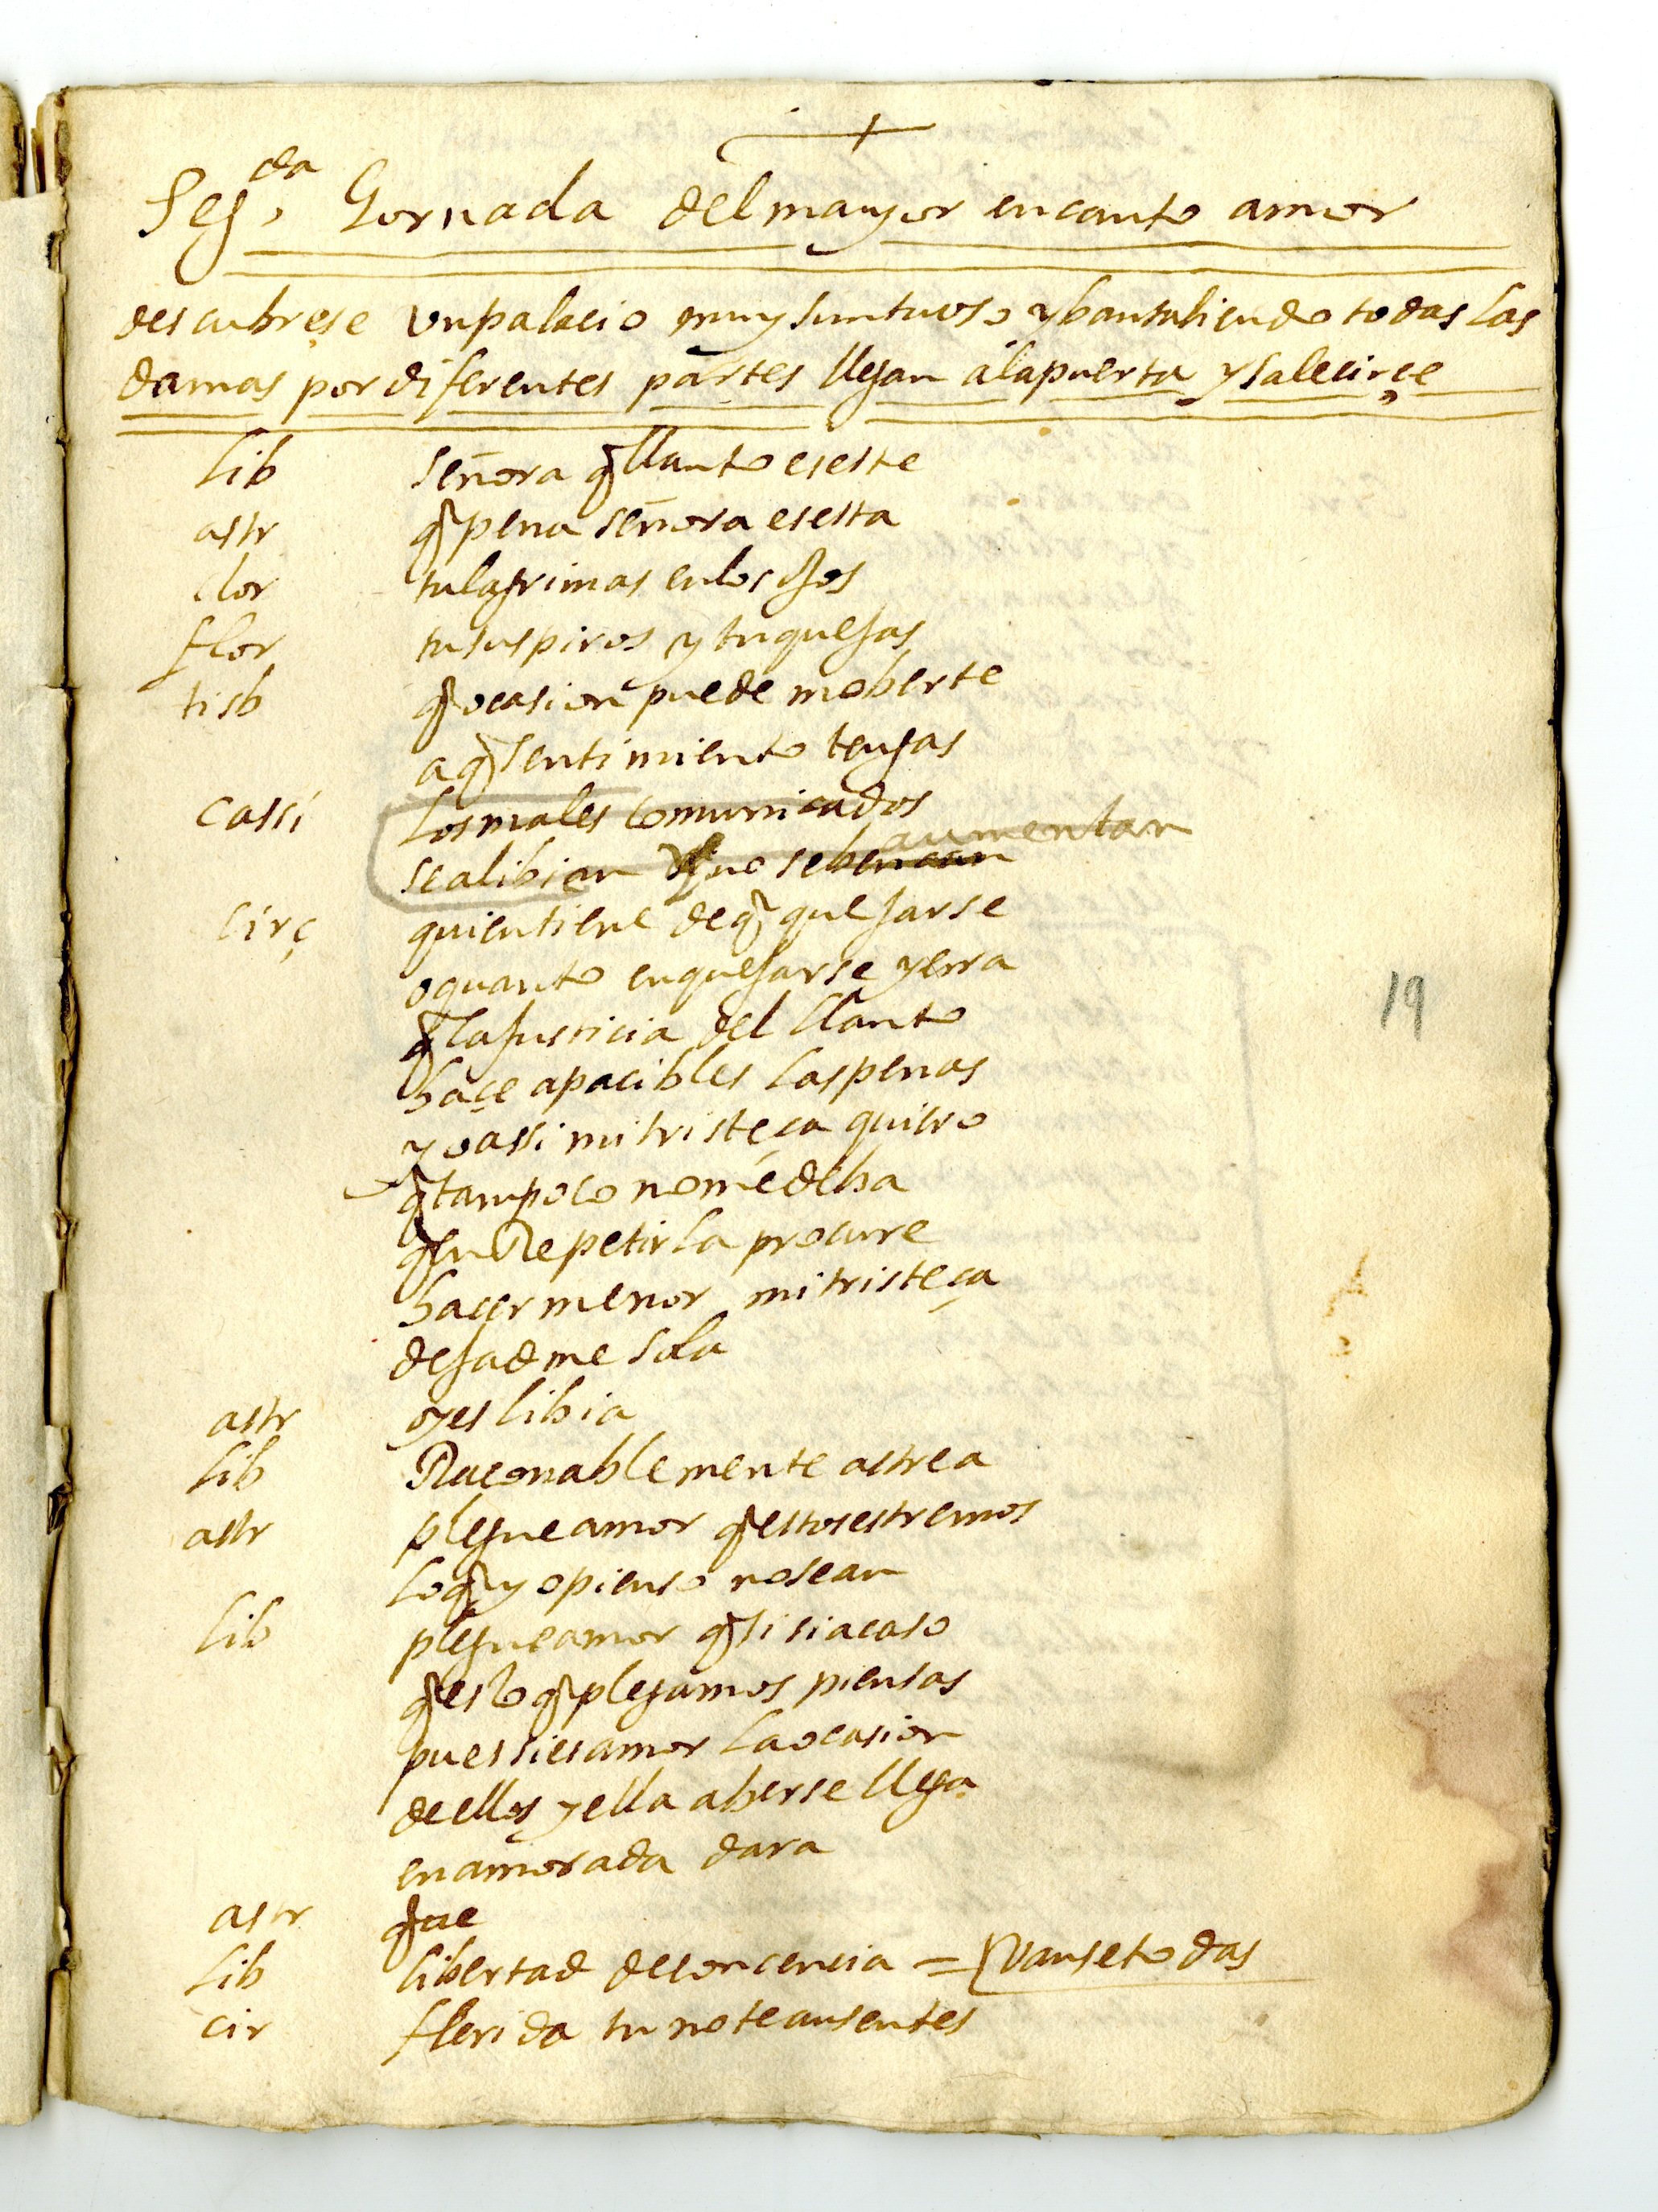 Segda Jornada del mayor encanto amor
descubrese un palacio muy suntuoso y ban saliendo todas las
damas por diferentes partes llegan a la puerta y sale cirçe
lib señora q llanto es este
astr q pena señora es esta
clor tu lagrimas en los ojos
flor tu suspiros y tu quejas
tisb q ocasion puede moberte
a q sentimiento tengas
cassi los males comunicados
se alibian si no se bençan aumentan
cirç quien tiene de q quejarse
o quanto en quejarse yerra
q la justicia del llanto
haçe apacibles las penas
yo assi mi tristeça quiero
q tampoco no me deba
q en Repetirla procure
haçer menor mi tristeça
dejadme sola
astr oyes libia
lib Raçonablemente astrea
astr plegue amor q estos estremos
lo q yo pienso no sean
lib plegue amor q si si acaso
q es lo q plegamos piensas
pues si es amor la ocasion
de ellos y ella a berse llega
enamorada dara
astr que
lib libertad de conciencia = Vanse todas
cir flerida tu no te ausentes
19